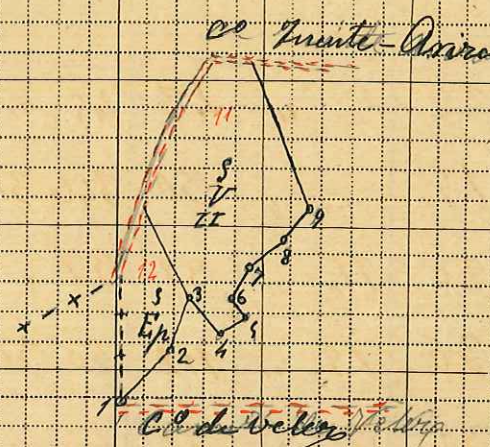 Cº Fuente-
11
S
V
II
9
8
7
12
S
3
6
5
Ep.
4
2
1
Cº de Velez